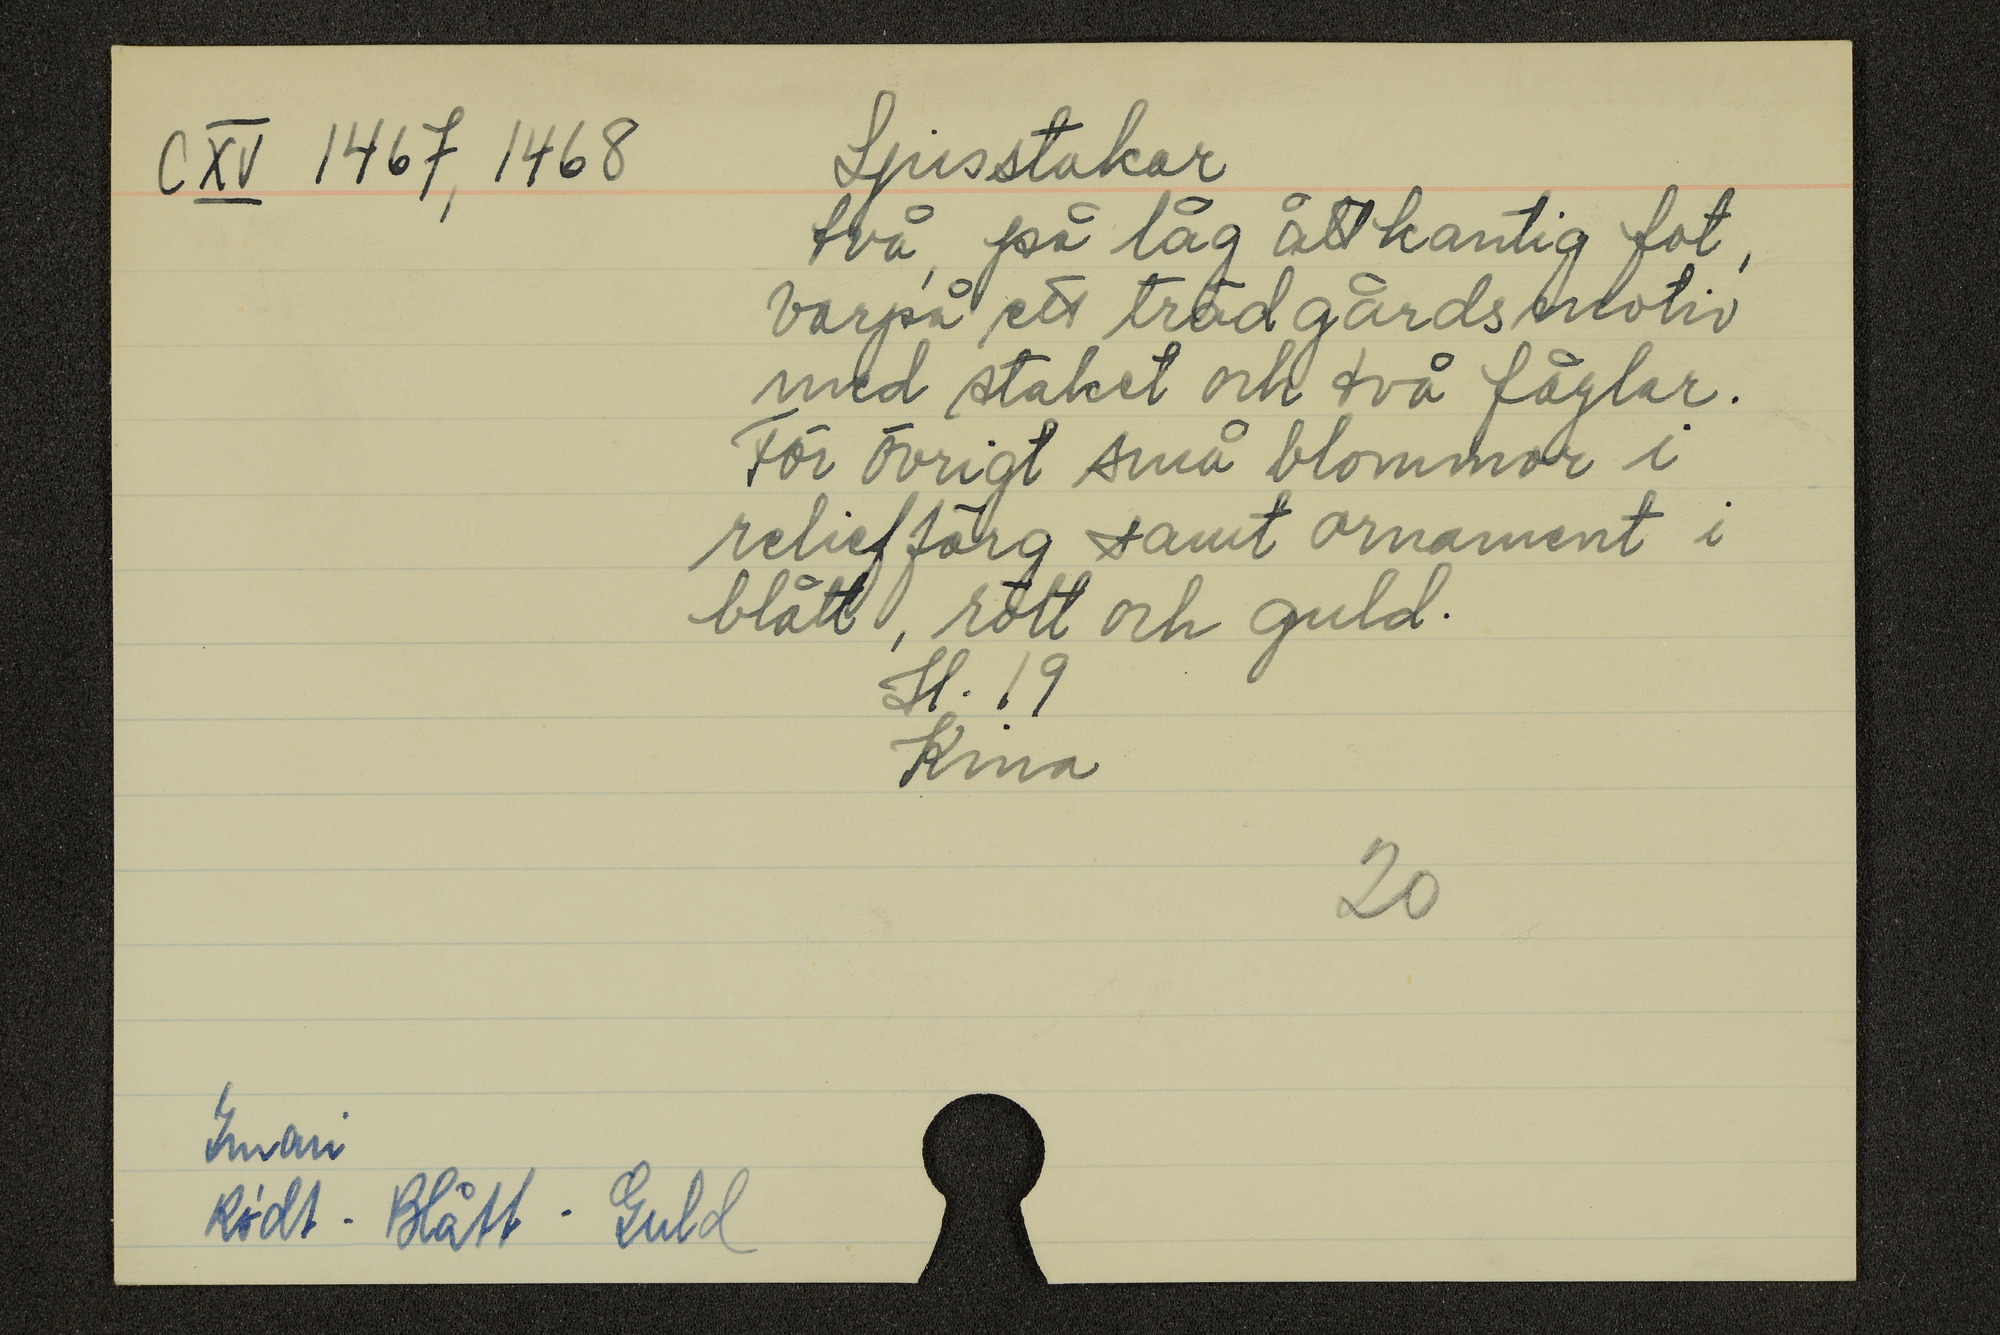 C XV 1467, 1468 Ljusstakar
två, på låg åttkantig fot,
varpå ett trädgårdsmotiv
med staket och två fåglar.
För övrigt små blommor i
relieffärg samt ornament i
blått, rött och guld.
H. 19
Kina
20
Imari
Rödt - Blått - Guld